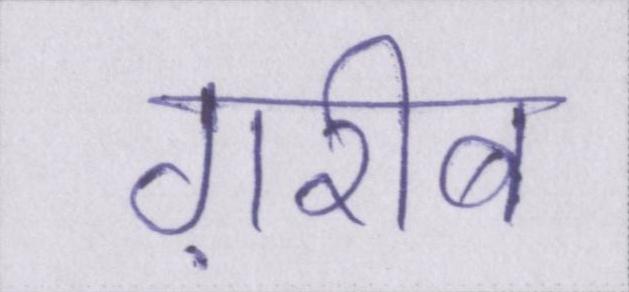 ग़रीब